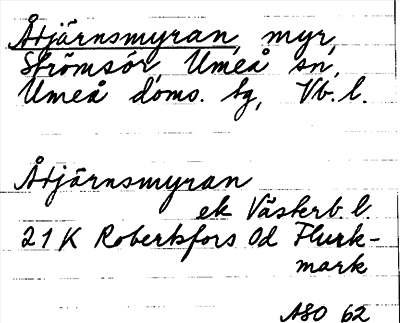 Åtjärnsmyran, myr,
Strömsör, Umeå sn,
Umeå doms. tg, Vb. l.
Åtjärnsmyran
ek Västerb. l.
21 K Robertsfors 0d Flurk-
mark
ASO 62